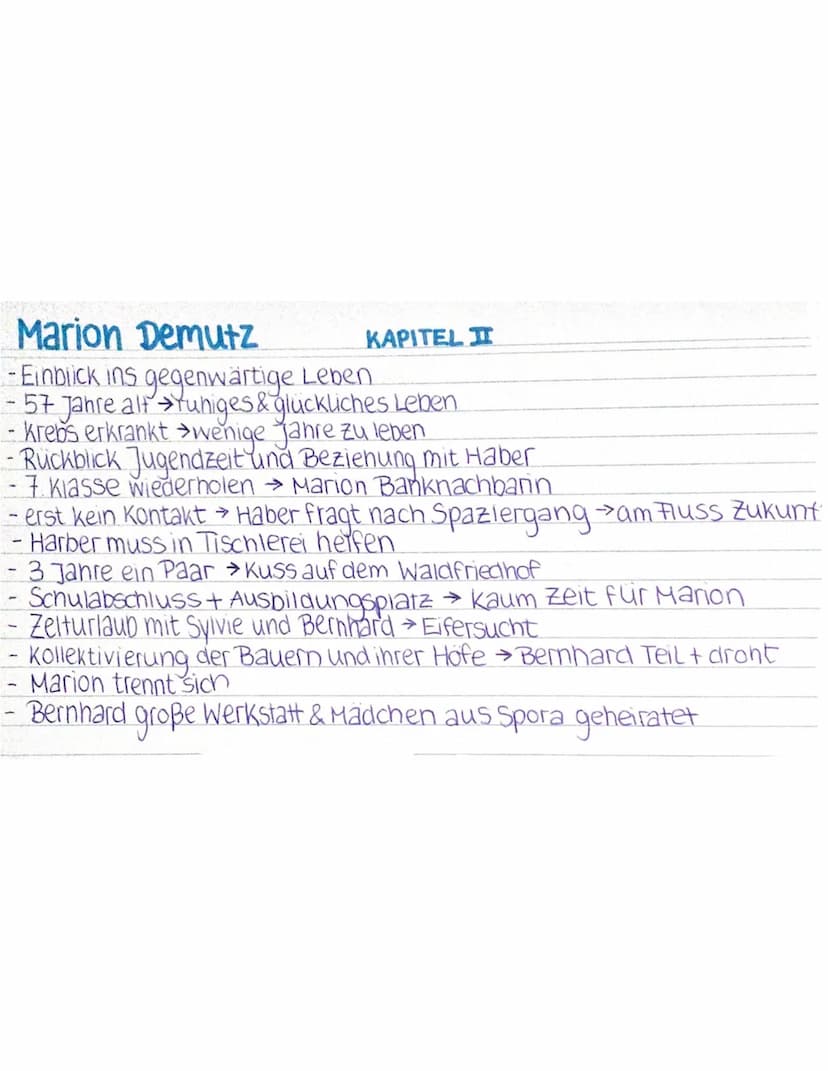 Marion Demutz KAPITEL II
- Einblick ins gegenwärtige Leben
- 57 Jahre alt → ruhiges & glückliches Leben
- Krebs erkrankt → wenige Jahre zu leben
- Rückblick Jugendzeit und Beziehung mit Haber
- 7. Klasse wiederholen → Marion Banknachbarin
- erst kein Kontakt → Haber fragt nach Spaziergang → am Fluss Zukunft
- Harber muss in Tischlerei helfen
- 3 Jahre ein Paar → Kuss auf dem Waldfriedhof
- Schulabschluss + Ausbildungsplatz → kaum Zeit für Marion
- Zelturlaub mit Sylvie und Bernhard → Eifersucht
- Kollektivierung der Bauern und ihrer Höfe → Bernhard Teil + droht
- Marion trennt sich
- Bernhard große Werkstatt & Mädchen aus Spora geheiratet